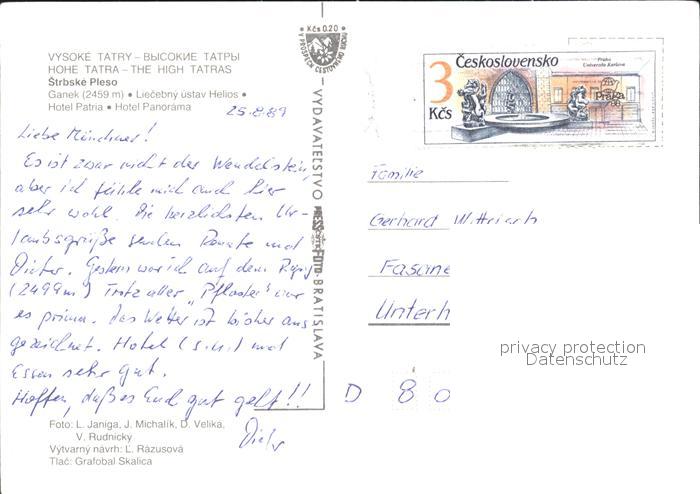 VYSOKÉ TATRY – ВЫСОКИЕ ТАТРЫ
HOHE TATRA – THE HIGH TATRAS
Štrbské Pleso
Ganek (2459 m) • Liečebný ústav Helios •
Hotel Patria • Hotel Panoráma
25.8.89
Liebe Münchner!
Es ist zwar nicht der Wendelstein,
aber ich fühle mich auch hier
sehr wohl. Die herzlichsten Ur-
laubsgrüße senden Renate und
Dieter. Gestern war ich auf dem Rysy
(2499m) Trotz aller „Pflaster" war
es prima. Das Wetter ist bisher aus
gezeichnet. Hotel (s.u.) und
Essen sehr gut.
Hoffen, daß es Euch gut geht!!
Dieter
Foto: L. Janiga, J. Michalík, D. Velika,
V. Rudnicky
Výtvarný návrh: Ľ. Rázusová
Tlač: Grafobal Skalica
• Kčs 0.20 •
V PROSPECH CESTOVNÉHO RUCHU
VYDAVATEĽSTVO PRESSFOTO BRATISLAVA
Československo
3
Kčs
Praha
Univerzita Karlova
Praga
88
Familie
Gerhard
Fasane
Unterh
D 80
privacy protection
Datenschutz